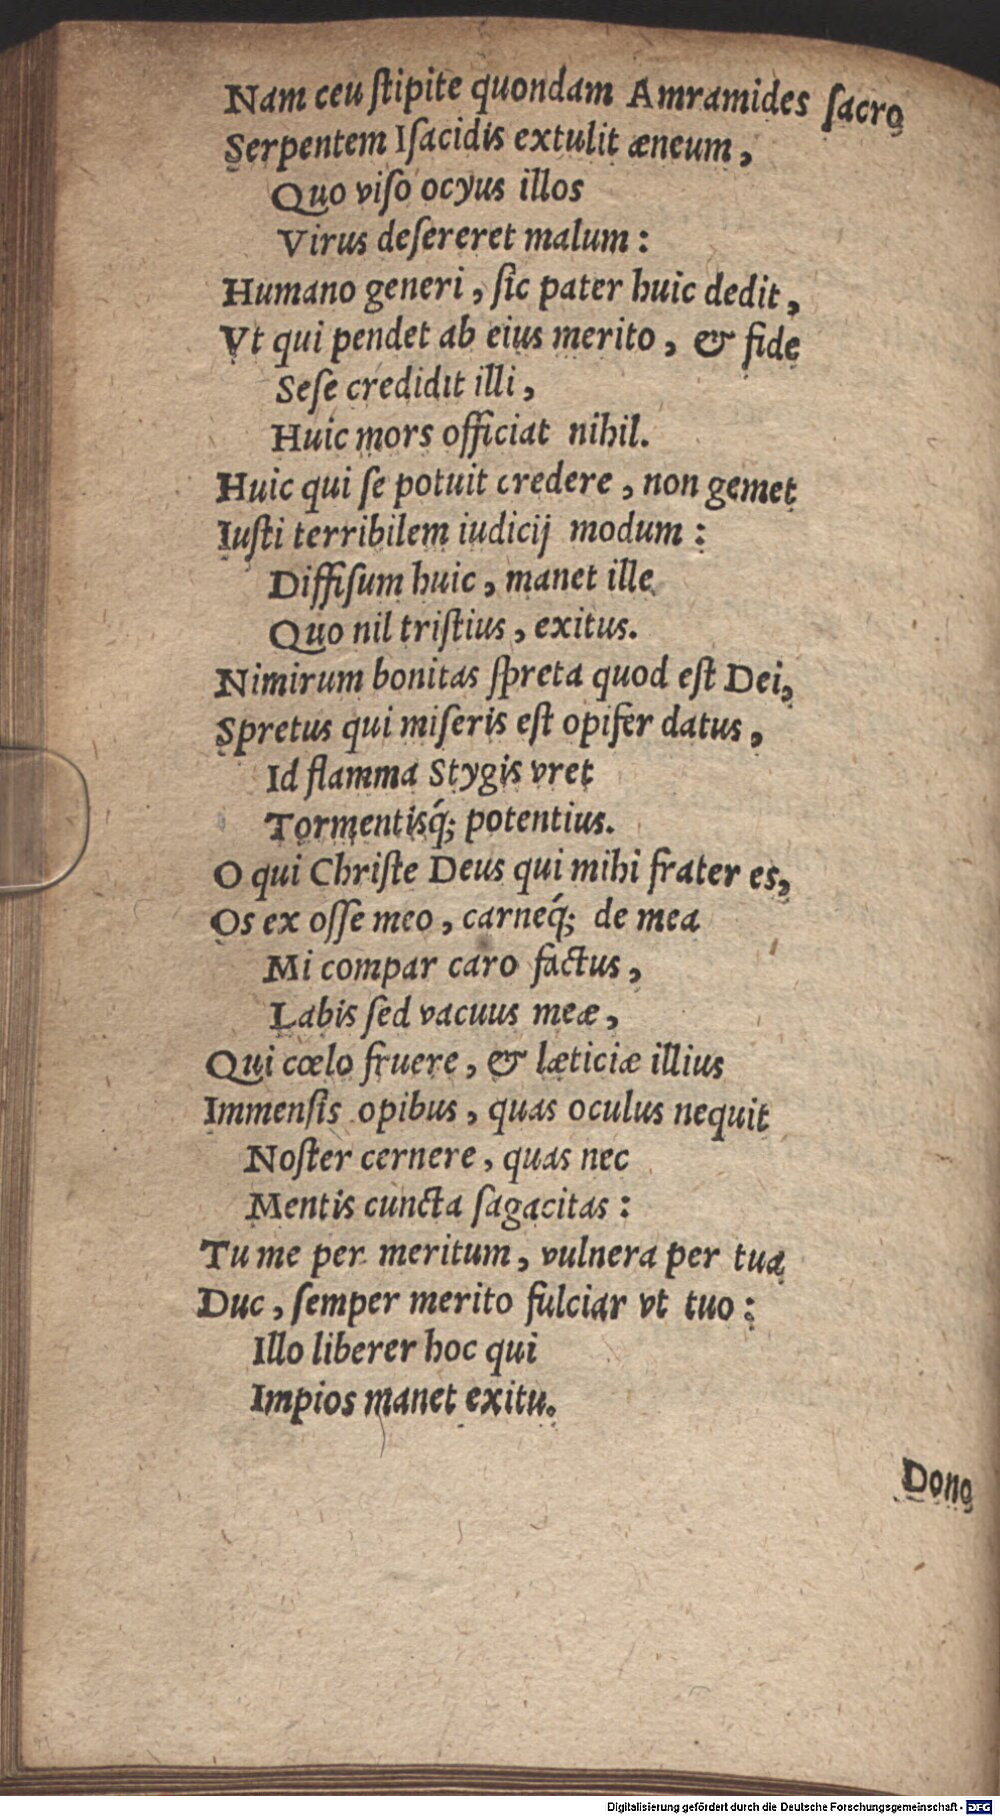 Nam ceu ſtipite quondam Amramides ſacro
Serpentem Iſacidis extulit æneum,
Quo viſo ocyus illos
Virus deſereret malum:
Humano generi, ſic pater huic dedit,
Vt qui pendet ab eius merito, & fide
Seſe credidit illi,
Huic mors officiat nihil.
Huic qui ſe potuit credere, non gemet
Iuſti terribilem iudicij modum:
Diffiſum huic, manet ille
Quo nil triſtius, exitus.
Nimirum bonitas ſpreta quod eſt Dei,
Spretus qui miſeris eſt opifer datus,
Id flamma Stygis vret
Tormentisq́; potentius.
O qui Chriſte Deus qui mihi frater es,
Os ex oſſe meo, carneq́; de mea
Mi compar caro factus,
Labis ſed vacuus meæ,
Qui cœlo fruere, & læticiæ illius
Immenſis opibus, quas oculus nequit
Noſter cernere, quas nec
Mentis cuncta ſagacitas:
Tu me per meritum, vulnera per tua
Duc, ſemper merito fulciar vt tuo:
Illo liberer hoc qui
Impios manet exitu.
Dono
Digitalisierung gefördert durch die Deutsche Forschungsgemeinschaft - DFG